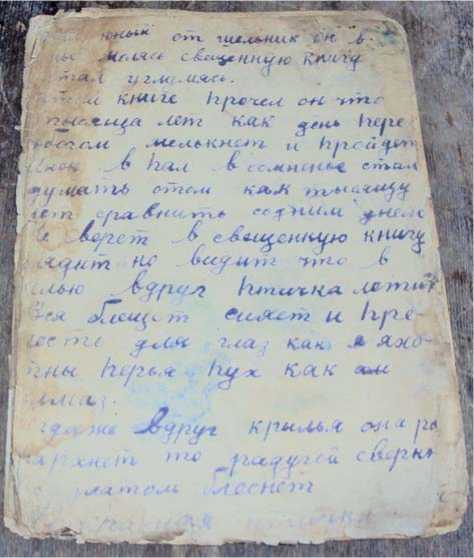 юный отшельник он в
молясь свещенную книгу
стал углумясь.
этои книге прочел он что
тысяща лет как день пере
богом мелькнет и пройдет
инок впал в сомненье стал
думать отом как тысящу
лет сравнить содним днем
не верет в свещенную книгу
глядит но видит что в
келью вдруг птичка летит
вся блещет сияет и пре-
лесть для глаз как яхо-
нты перья пух как ал
алмаз.
вдруг крылья она ра
порхнет то радугой сверкн
златом блеснет
птичка